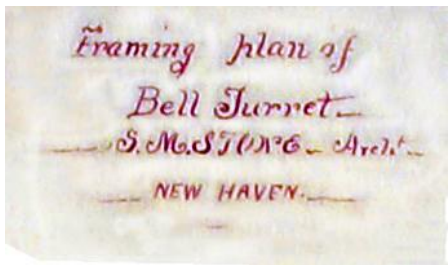 Framing plan of
Bell Turret
S. M. STONE - Archt.
NEW HAVEN.